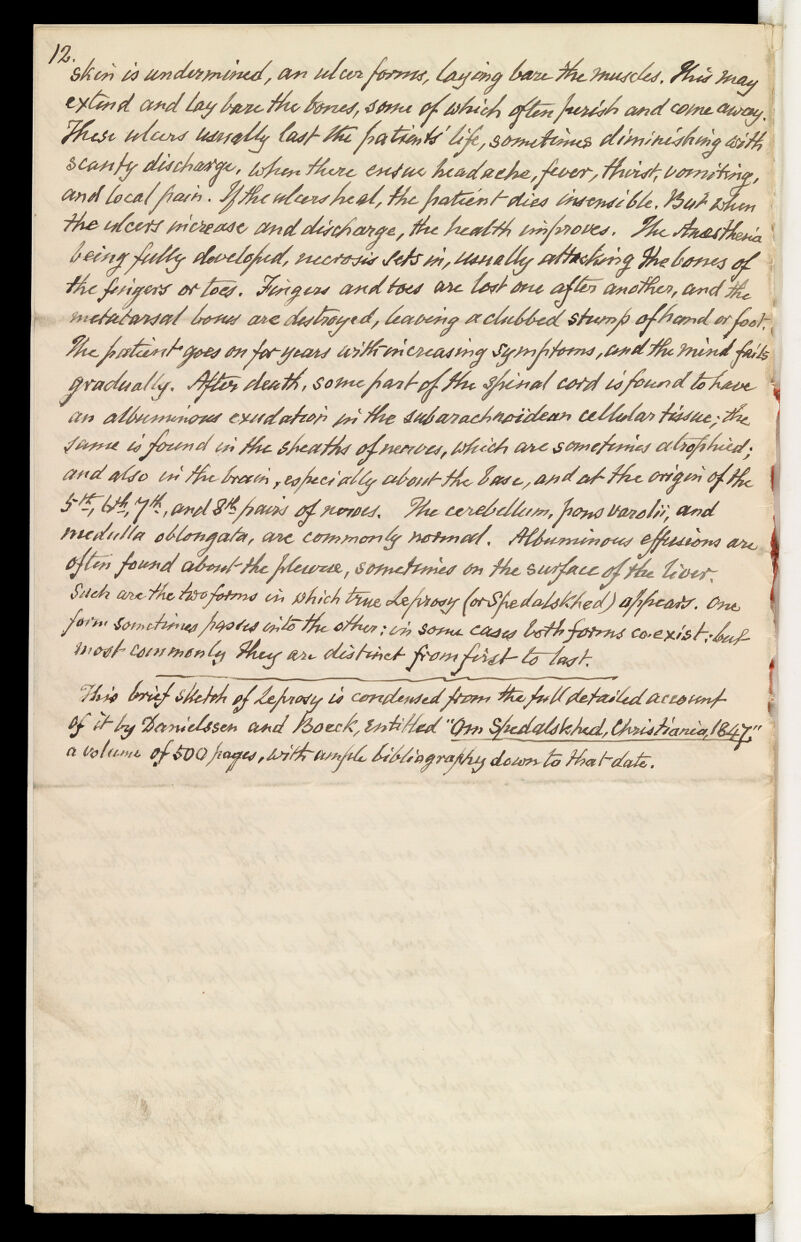 12.
skin is undermined, an ulcer forms, laying bare the muscles. This may
extend and lay bare the bones, some of which often perish and come away.
These ulcers usually last the patients' life, sometimes diminishing with
scanty discharge, when there ensue headache, fever, thirst, vomiting,
and local pain. If the ulcers heal, the patient dies insensible. But when
the ulcers increase and discharge, the health improves. The Anæsthesia
being fully developed, necrosis sets in, usually attacking the bones of
the fingers or toes. Fingers and toes are lost one after another, and the
metatarsal bones are destroyed, leaving a clubbed stump of hand or foot.
The patient goes on for years with increasing symptoms, and the mind fails
gradually. After death, some part of the spinal cord is found to have
an albuminous exudation in the subarachnoidean cellular tissue; the
same is found in the sheaths of nerves, which are sometimes atrophied;
and also in the brain, especially about the base, and at the origin of the
5th, 6th, 7th, and 8th pairs of nerves. The cerebellum, pons varolii, and
medulla oblongata, are commonly normal. Albuminous effusions are
often found about the pleuræ, sometimes on the surface of the liver.
Such are the two forms in which true Leprosy (or Spedalskhed) appears. One
form sometimes passes into the other: in some cases both forms co-exist: but
most commonly they are distinct from first to last.
This brief sketch of Leprosy is condensed from the full detailed account
of it by Danielssen and Boeck, entitled "Om Spedalskhed, Christiania, 1847,"
a volume of 500 pages, with ample bibliography down to that date.